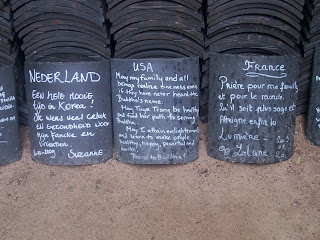 NEDERLAND
Een hele mooie
tijd in Korea!
Ik wens veel geluk
en gezondheid voor
mijn familie en
vrienden
Suzanne
USA
May my family and all
beings realize oneness even
if they have never heard the
Buddha's name.
May Tuye Trang be healthy
and find her path to serving
Buddha.
May I attain enlightenment
and learn to make people
healthy, happy, peaceful and
awake.
Praise to Buddha!
France
Prière pour ma famille
et pour le monde
Qu'il soit plus sage et
Atteigne enfin la
Lumière.